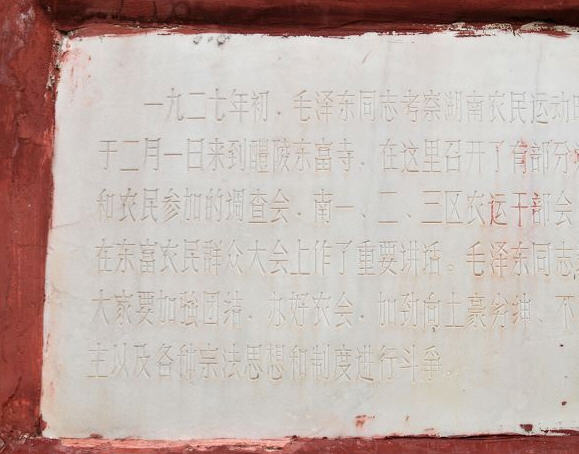 一九二七年初．毛泽东同志考察湖南农民运动
于二月一日来到醴陵东富寺．在这里召开了有部分
和农民参加的调查会．南一、二、三区农运干部会
在东富农民群众大会上作了重要讲话。毛泽东同志
大家要加强团结．办好农会．加劲向土豪劣绅、不
主以及各种宗法思想和制度进行斗争．